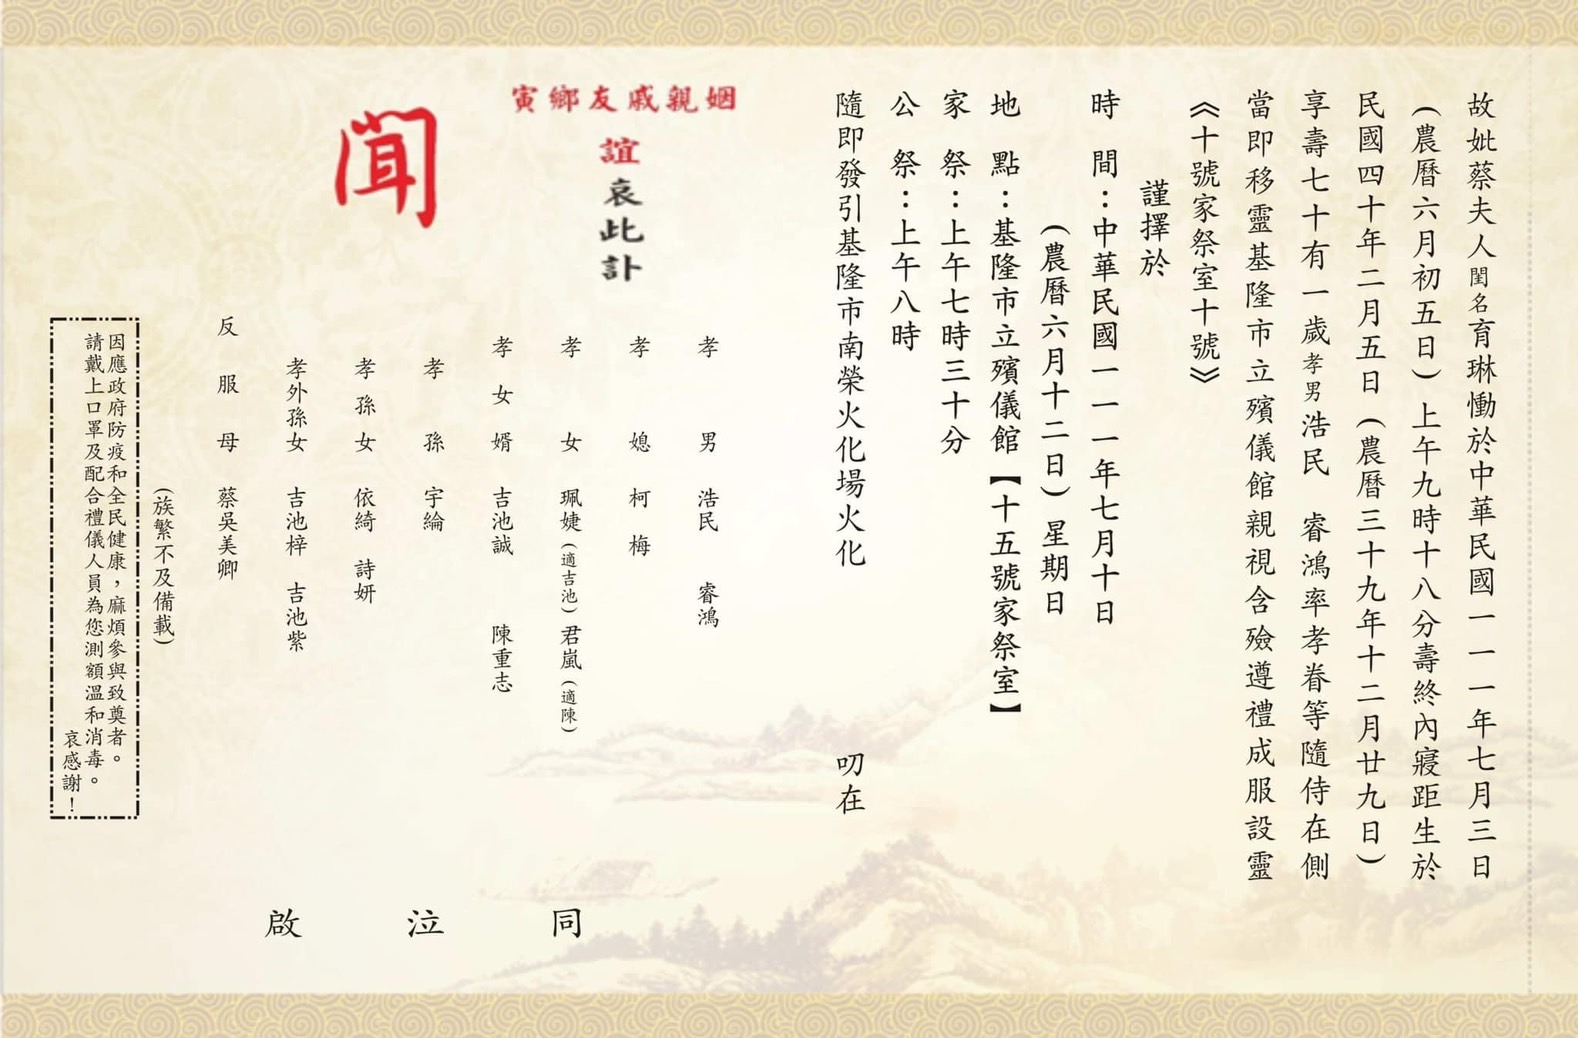 故妣蔡夫人閨名育琳慟於中華民國一一一年七月三日
(農曆六月初五日)上午九時十八分壽終內寢距生於
民國四十年二月五日(農曆三十九年十二月廿九日)
享壽七十有一歲孝男浩民 睿鴻率孝眷等隨侍在側
當即移靈基隆市立殯儀館親視含殮遵禮成服設靈
《十號家祭室十號》
謹擇於
時 間：中華民國一一一年七月十日
(農曆六月十二日)星期日
地 點：基隆市立殯儀館【十五號家祭室】
家 祭：上午七時三十分
公 祭：上午八時
隨即發引基隆市南榮火化場火化 叨在
姻親戚友鄉寅
誼
哀此訃
聞
孝男 浩民 睿鴻
孝媳 柯梅
孝女 珮婕(適吉池)君嵐(適陳)
孝女婿 吉池誠 陳重志
孝孫 宇綸
孝孫女 依綺 詩妍
孝外孫女 吉池梓 吉池紫
反服母 蔡吳美卿
(族繁不及備載)
同泣啟
因應政府防疫和全民健康，麻煩參與致奠者。
請戴上口罩及配合禮儀人員為您測額溫和消毒。
哀感謝！